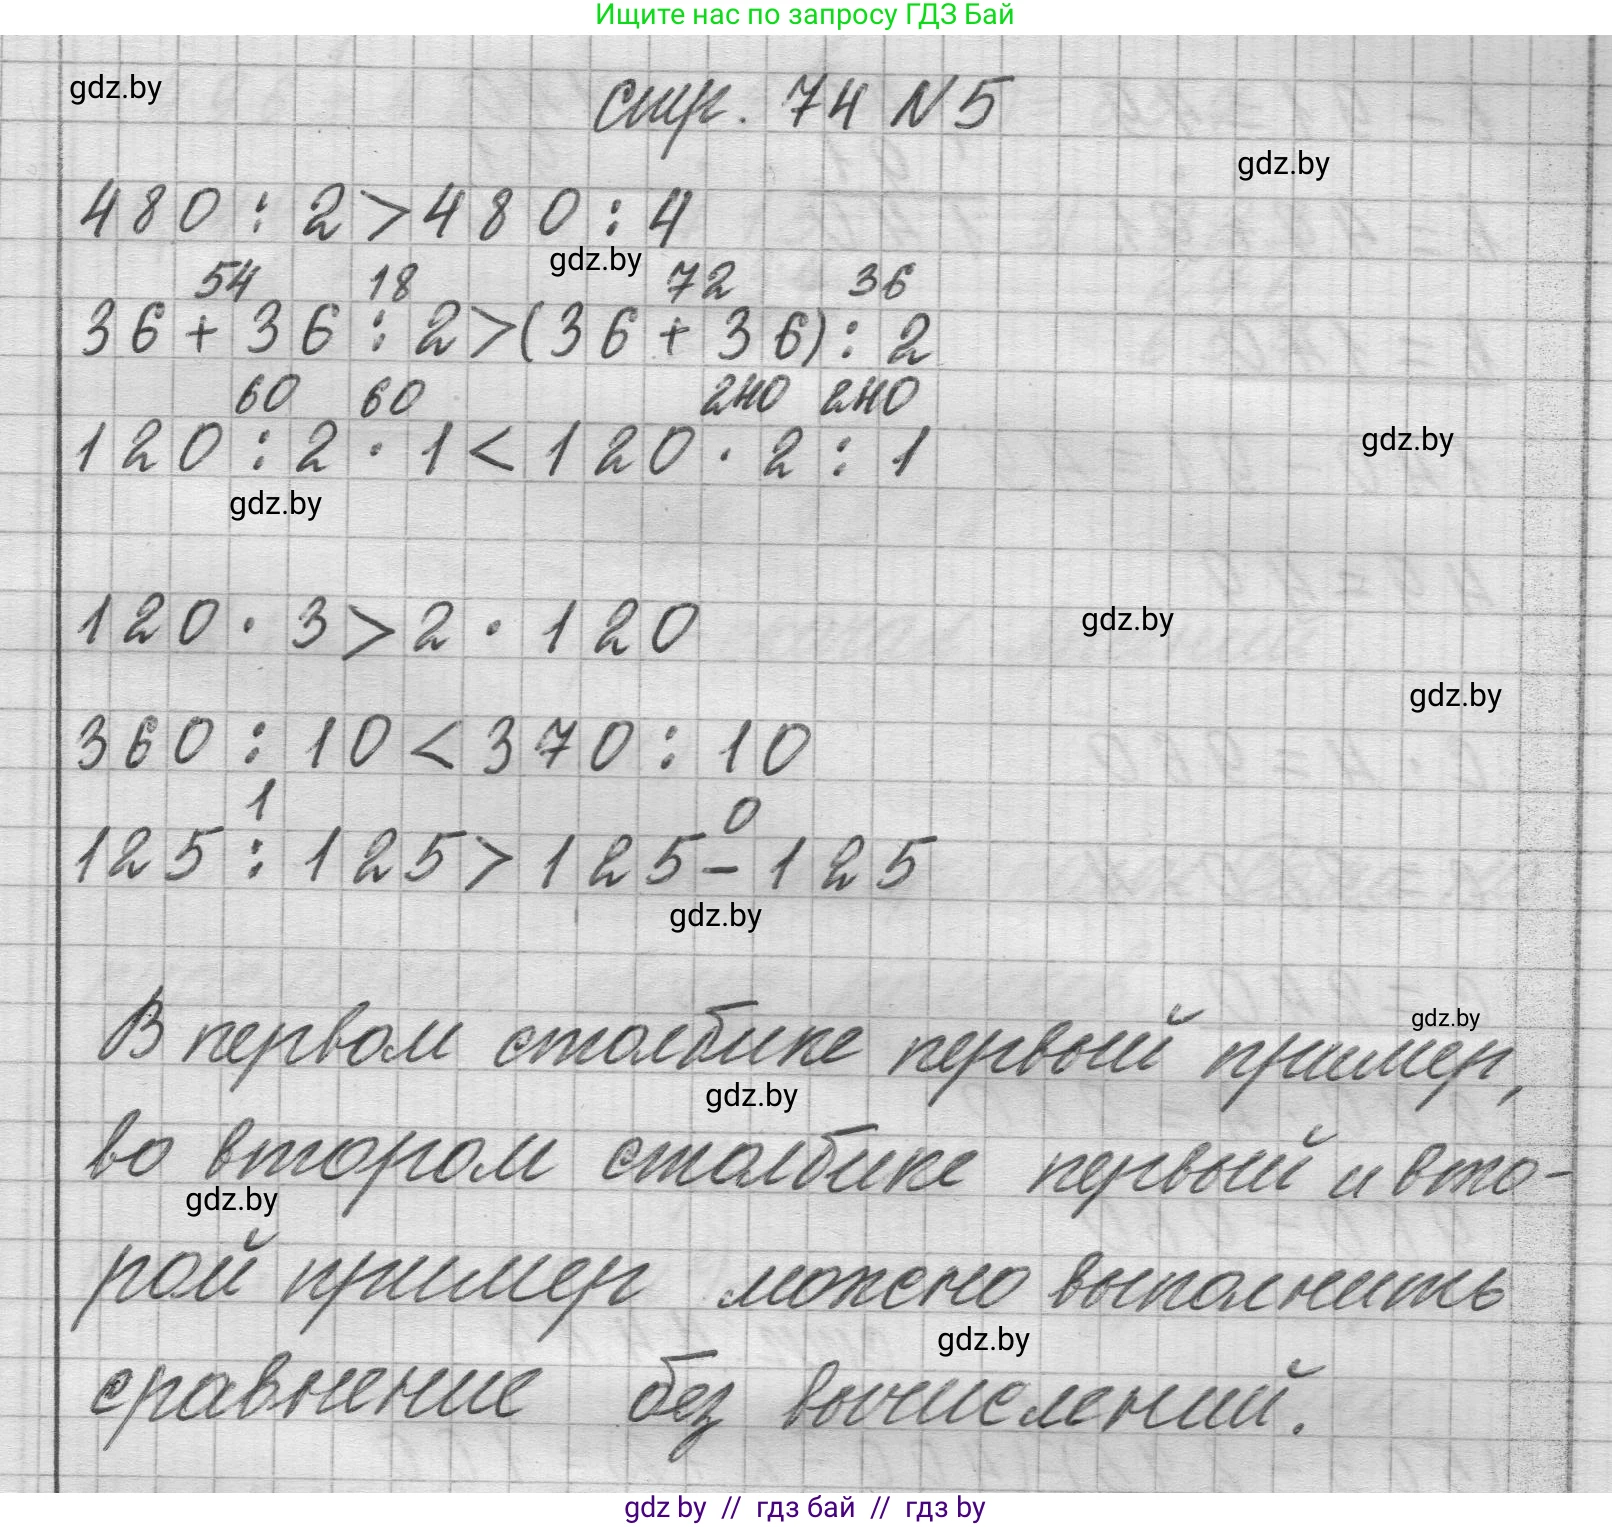 Ищите нас по запросу ГДЗ Бай
gdz.by
стр. 74 N 5
gdz.by
480 : 2 > 480 : 4
gdz.by
54 18 72 36
36 + 36 : 2 > (36 + 36) : 2
60 60 240 240
120 : 2 · 1 < 120 · 2 : 1
gdz.by
gdz.by
120 · 3 > 2 · 120
gdz.by
gdz.by
360 : 10 < 370 : 10
1 0
125 : 125 > 125 - 125
gdz.by
gdz.by
В первом столбике первый пример,
gdz.by
во втором столбике первый и вто-
gdz.by
рой пример можно выполнить
gdz.by
сравнение без вычислений.
gdz by // гдз бай // гдз by